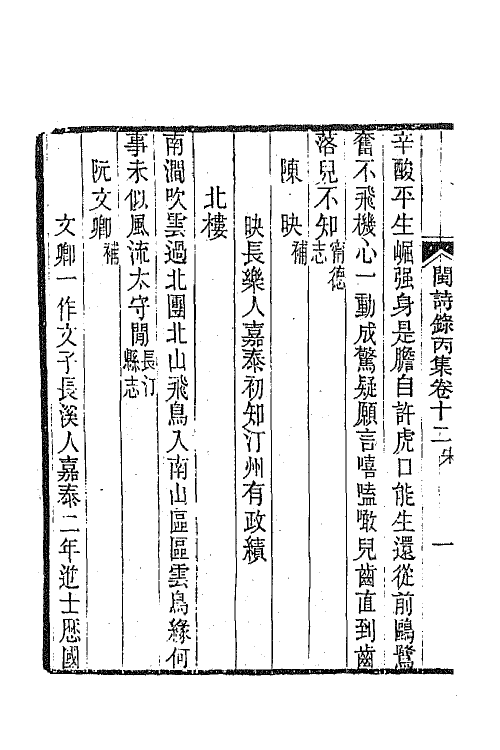 閩詩錄丙集卷十二 宋 一
辛酸平生崛强身是膽自許虎口能生還從前鷗鷺
奮不飛機心一動成驚疑願言嘻嗑噉兒齒直到齒
落兒不知甯德志
陳映補
映長樂人嘉泰初知汀州有政績
北樓
南澗吹雲過北團北山飛鳥入南山區區雲鳥緣何
事未似風流太守閒長汀縣志
阮文卿補
文卿一作文子長溪人嘉泰二年進士歷國